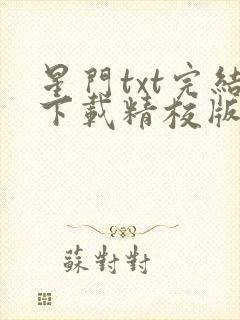 星門txt完結
下載精校版
蘇對對